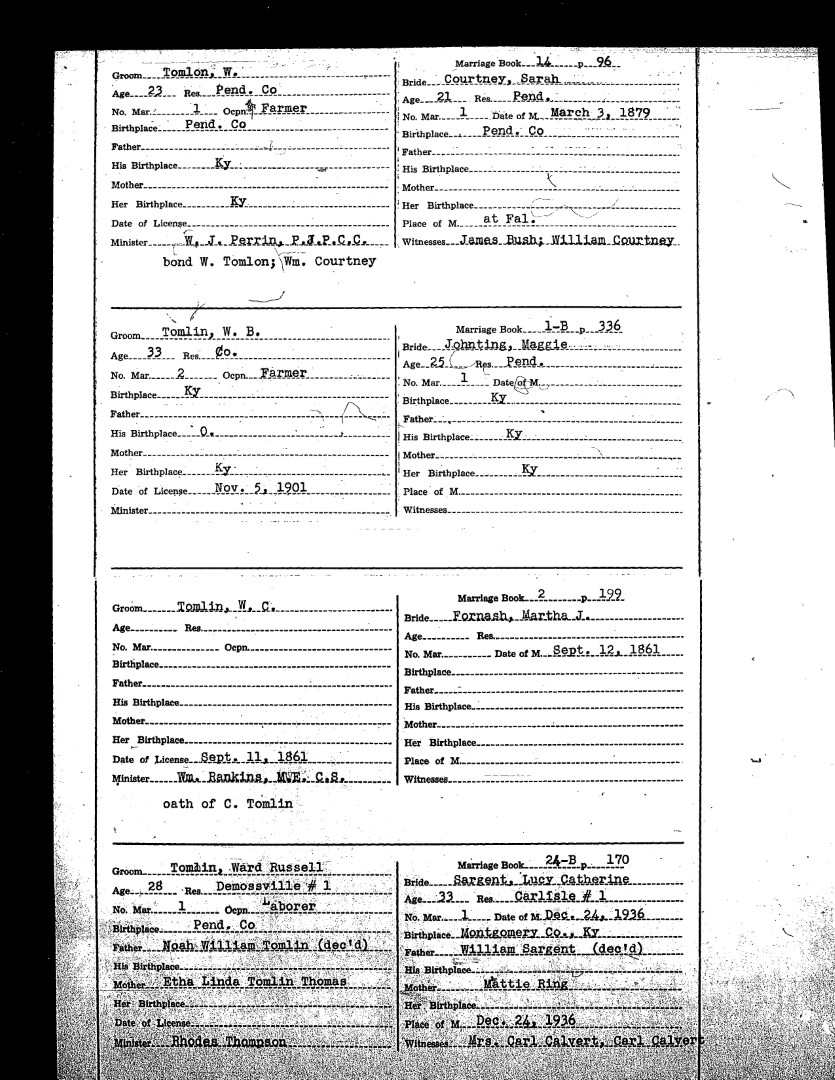 Groom Tomlon, W.
Age 23 Res. Pend. Co
No. Mar. 1 Ocpn. Farmer
Birthplace Pend. Co
Father
His Birthplace Ky
Mother
Her Birthplace Ky
Date of License
Minister W. J. Perrin, P.J.P.C.C.
bond W. Tomlon; Wm. Courtney
Marriage Book 14 p. 96
Bride Courtney, Sarah
Age 21 Res. Pend.
No. Mar. 1 Date of M. March 3, 1879
Birthplace Pend. Co
Father
His Birthplace
Mother
Her Birthplace
Place of M. at Fal.
Witnesses James Bush; William Courtney
Groom Tomlin, W. B.
Age 33 Res. Co.
No. Mar. 2 Ocpn. Farmer
Birthplace Ky
Father
His Birthplace O.
Mother
Her Birthplace Ky
Date of License Nov. 5, 1901
Minister
Marriage Book 1-B p 336
Bride Johnting, Maggie
Age 25 Res. Pend.
No. Mar. 1 Date of M.
Birthplace Ky
Father
His Birthplace Ky
Mother
Her Birthplace Ky
Place of M.
Witnesses
Groom Tomlin, W. C.
Age Res.
No. Mar. Ocpn.
Birthplace
Father
His Birthplace
Mother
Her Birthplace
Date of License Sept. 11, 1861
Minister Wm. Rankins, M.E. C.S.
oath of C. Tomlin
Marriage Book 2 p. 199
Bride Fornash, Martha J.
Age Res.
No. Mar. Date of M. Sept. 12, 1861
Birthplace
Father
His Birthplace
Mother
Her Birthplace
Place of M.
Witnesses
Groom Tomlin, Ward Russell
Age 28 Res. Demossville # 1
No. Mar. 1 Ocpn. Laborer
Birthplace Pend. Co
Father Noah William Tomlin (dec'd)
His Birthplace
Mother Etha Linda Tomlin Thomas
Her Birthplace
Date of License
Minister Rhodes Thompson
Marriage Book 24-B p 170
Bride Sargent, Lucy Catherine
Age 33 Res. Carlisle # 1
No. Mar. 1 Date of M. Dec. 24, 1936
Birthplace Montgomery Co., Ky
Father William Sargent (dec'd)
His Birthplace
Mother Mattie Ring
Her Birthplace
Place of M. Dec. 24, 1936
Witnesses Mrs. Carl Calvert, Carl Calvert